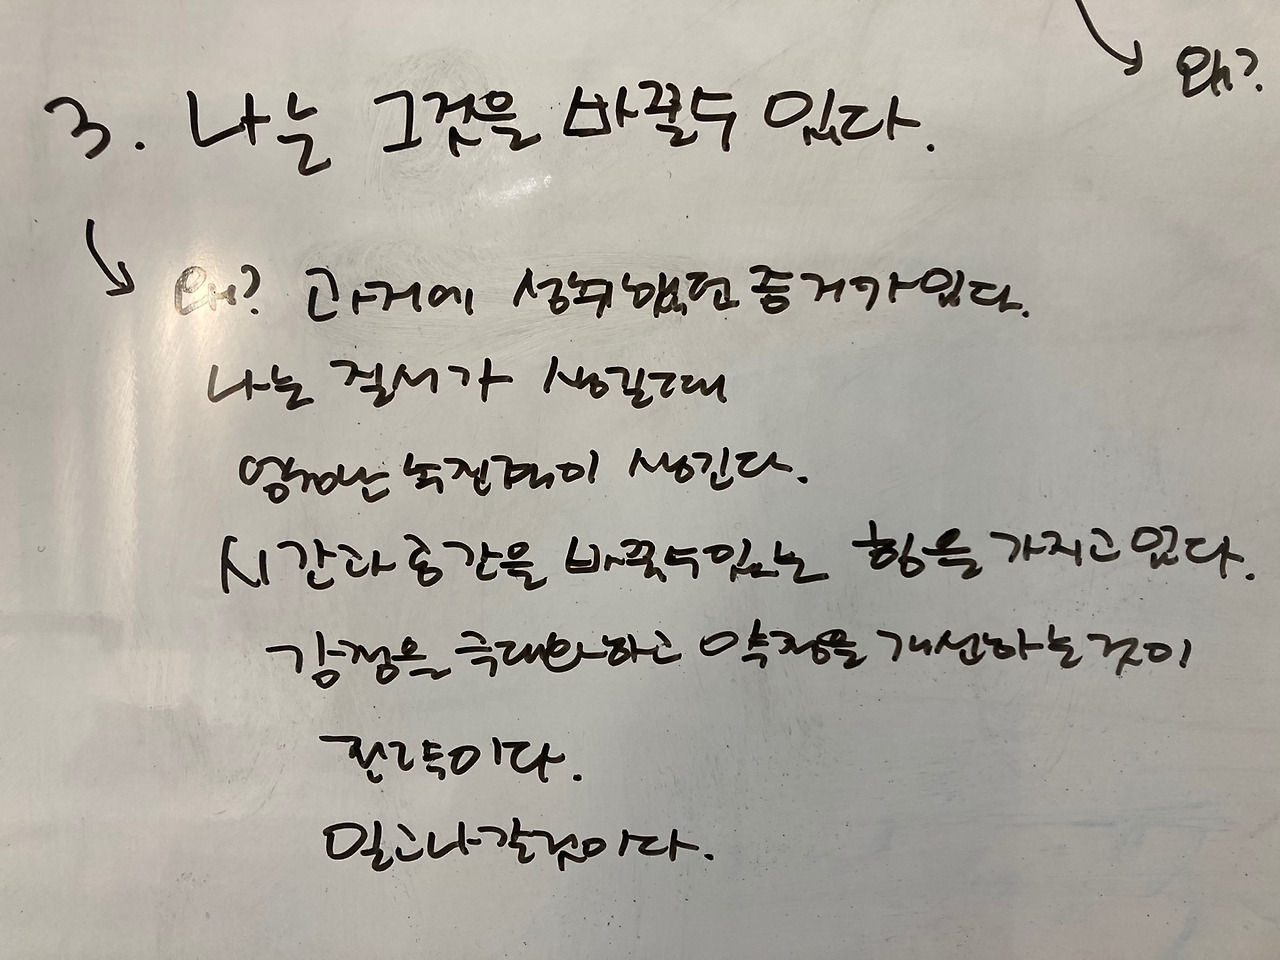 왜?
3. 나는 그것을 바꿀수 있다.
왜? 과거에 성취했던 증거가있다.
나는 질서가 생길때
엄청난 추진력이 생긴다.
시간과 공간을 바꿀수있는 힘을 가지고 있다.
강점은 극대화하고 약점을 개선하는것이
전략이다.
밀고나갈것이다.